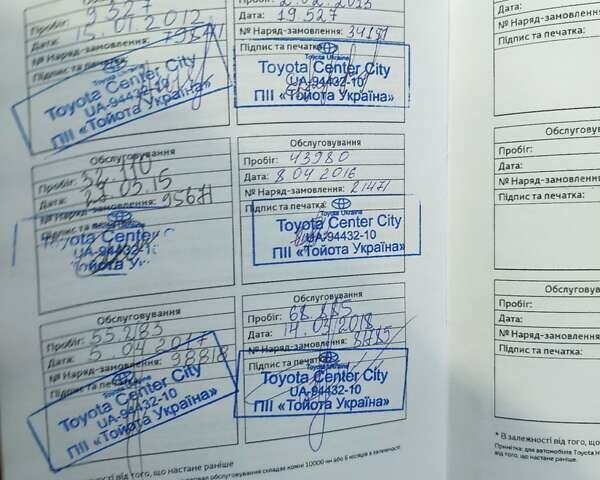 9327
Дата: 15.01.2012
№ Наряд-замовлення:
Підпис та печатка:
Toyota Center City
UA-94432-10
ПІІ «Тойота Україна»
Дата: 19.527
№ Наряд-замовлення: 34191
Підпис та печатка:
Toyota Ukraine
Toyota Center City
UA-94432-10
ПІІ «Тойота Україна»
Обслуговування
Пробіг: 32.110
Дата: 03.15
№ Наряд-замовлення: 95671
Підпис та печатка:
Toyota Center
UA-94432-1
Тойота У
Обслуговування
Пробіг: 43980
Дата: 8 04 2016
№ Наряд-замовлення: 21471
Підпис та печатка:
Toyota Ukraine
Toyota Center City
UA-94432-10
ПІІ «Тойота Україна»
Обслуговування
Пробіг: 55.283
Дата: 5 04 2017
№ Наряд-замовлення: 98818
Підпис та печатка:
Toyota Center City
UA-94432-10
ПІІ «Тойота Україна»
Обслуговування
Пробіг: 68.885
Дата: 14.03.2018
№ Наряд-замовлення:
Підпис та печатка:
Toyota Ukraine
Toyota Center City
UA-94432-10
ПІІ «Тойота Україна»
від того, що настане раніше
обслуговування складає кожні 10000 км або 6 місяців в залежності
Дата:
№ Наряд-замовлення
Підпис та печатка:
Обслуговув
Пробіг:
Дата:
№ Наряд-замовлення
Підпис та печатка:
Обслугову
Пробіг:
Дата:
№ Наряд-замовлення
Підпис та печатка:
* В залежності від того, що
Примітка: для автомобілів Toyota H
від того, що настане раніше.